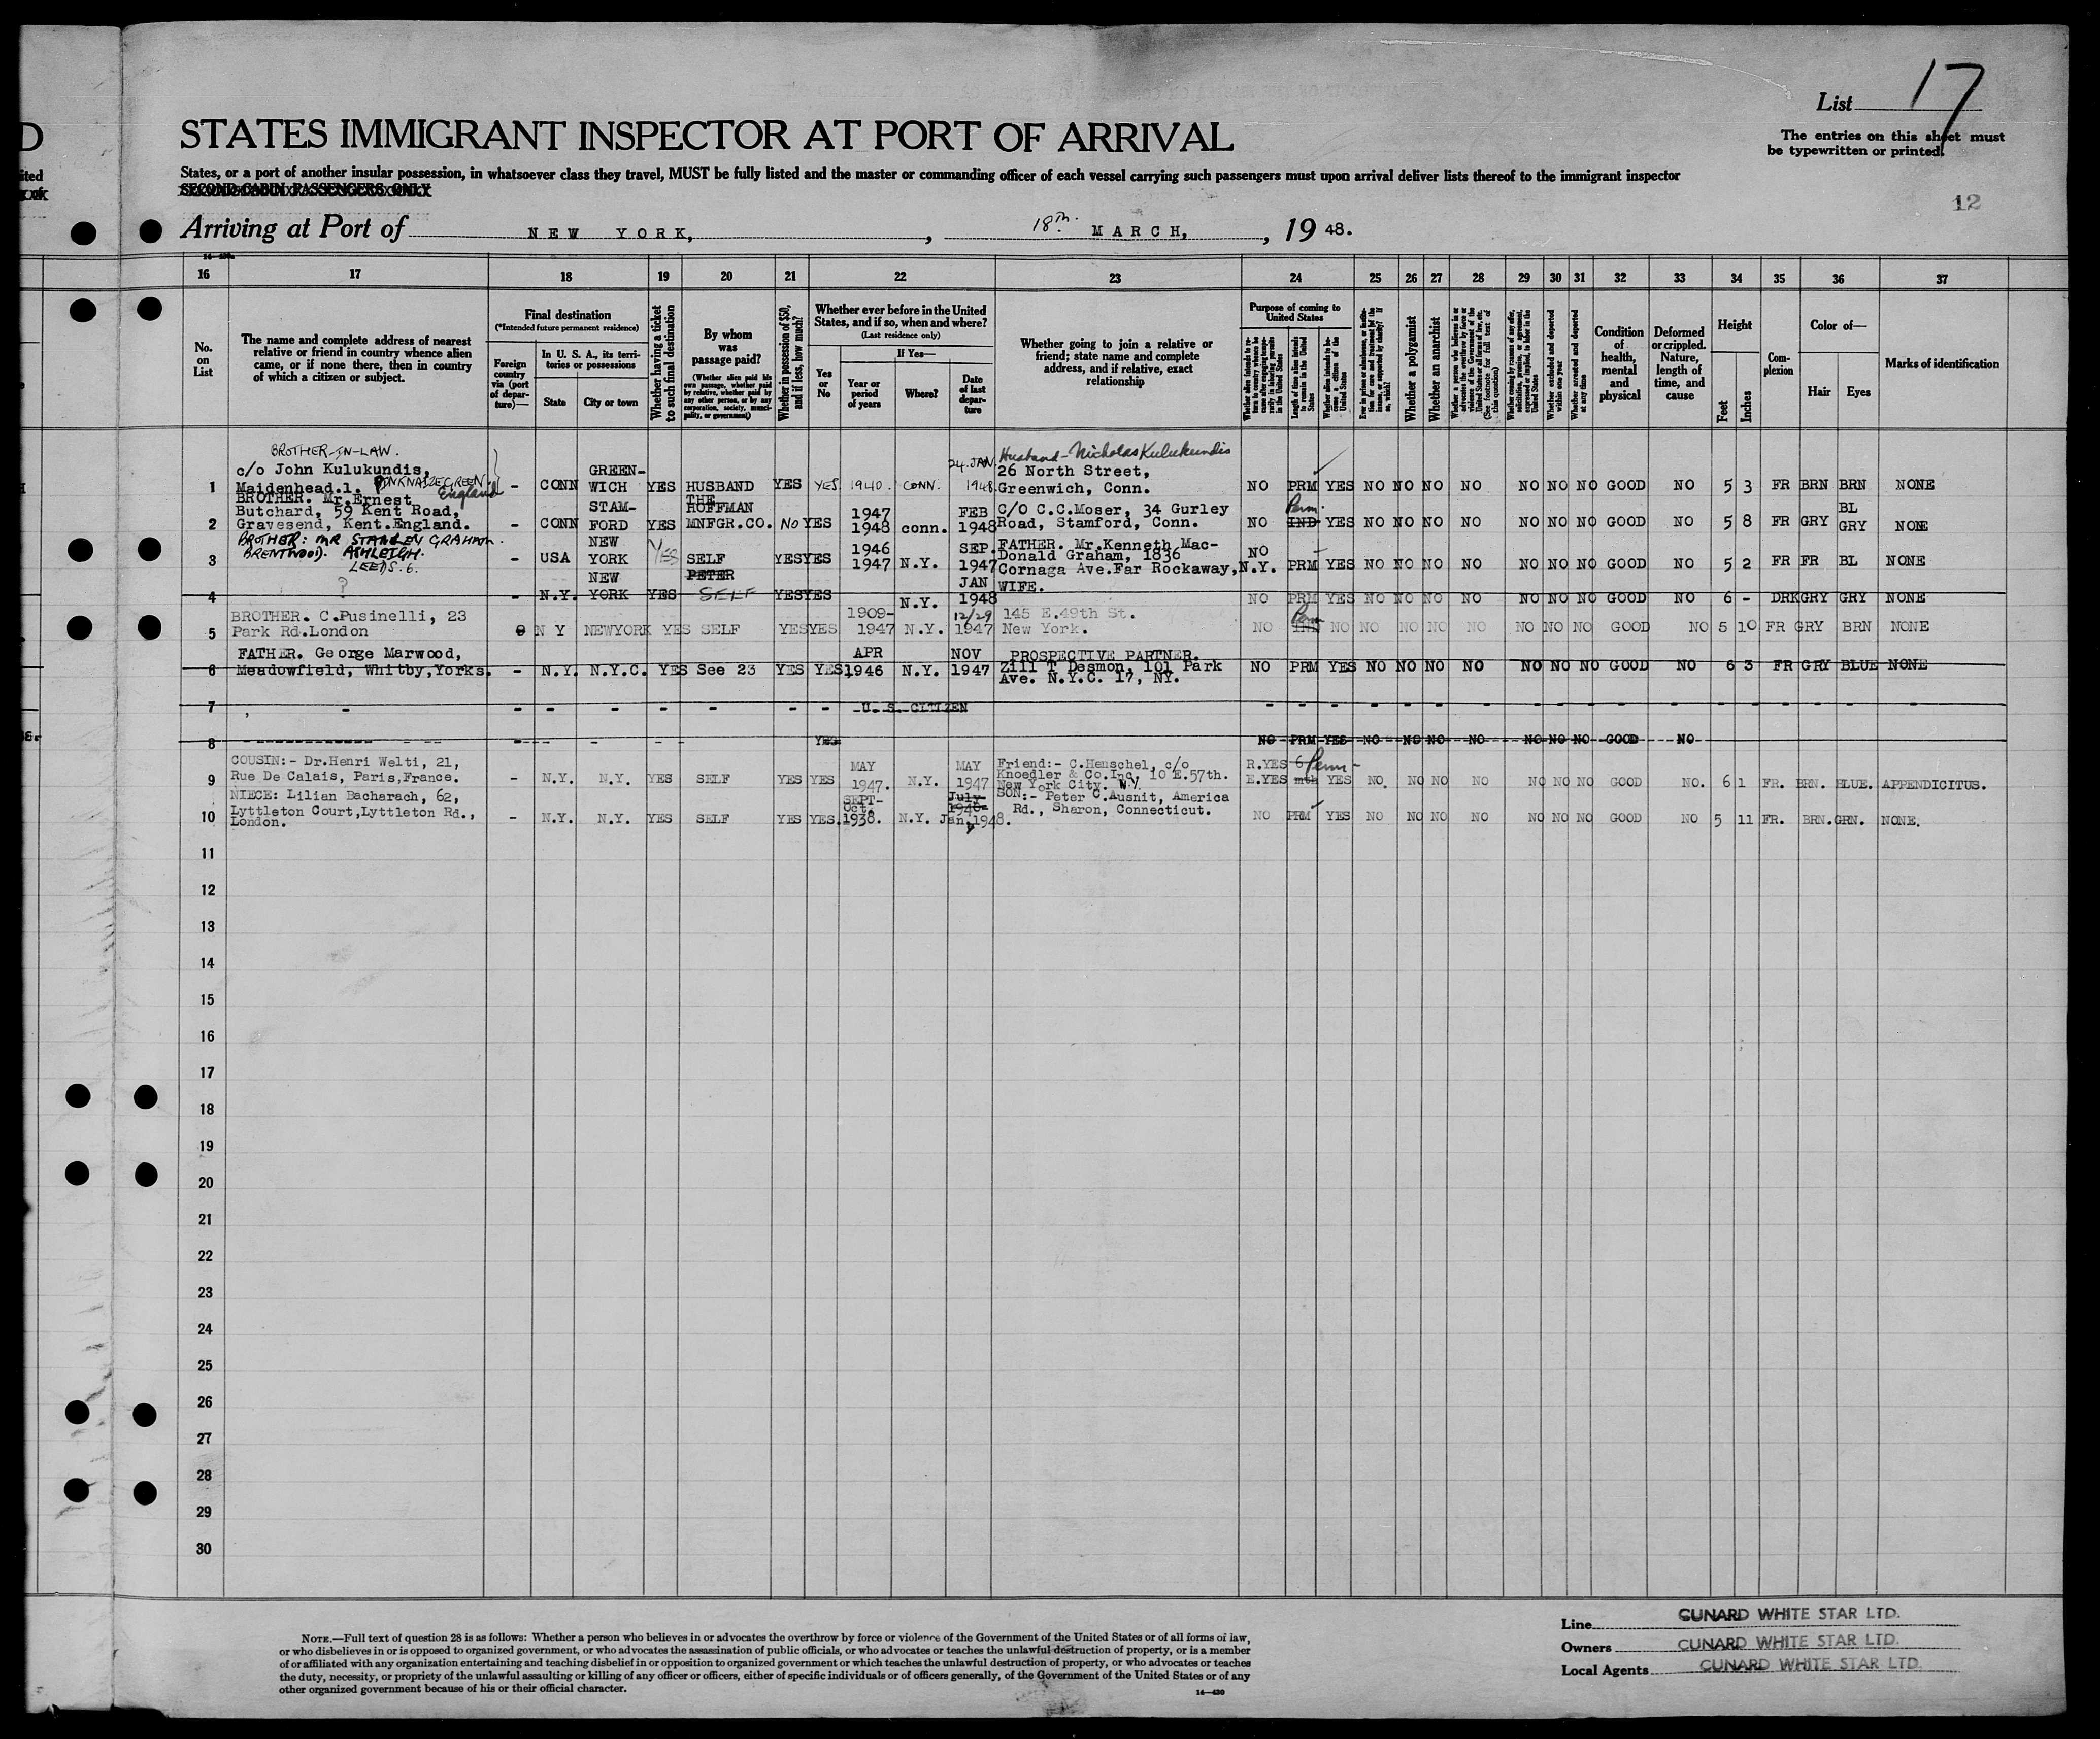 List 17
The entries on this sheet must
be typewritten or printed.
STATES IMMIGRANT INSPECTOR AT PORT OF ARRIVAL
States, or a port of another insular possession, in whatsoever class they travel, MUST be fully listed and the master or commanding officer of each vessel carrying such passengers must upon arrival deliver lists thereof to the immigrant inspector
SECOND-CABIN PASSENGERS ONLY
12
Arriving at Port of NEW YORK, , 18th MARCH, , 19 48.
16 17 18 19 20 21 22 23 24 25 26 27 28 29 30 31 32 33 34 35 36 37
No. on List
The name and complete address of nearest
relative or friend in country whence alien
came, or if none there, then in country
of which a citizen or subject.
Final destination
(*Intended future permanent residence)
Foreign country via (port of departure)—
In U. S. A., its territories or possessions
State
City or town
Whether having a ticket to such final destination
By whom was passage paid?
(Whether alien paid his own passage, whether paid by relative, whether paid by any other person, or by any corporation, society, municipality, or government)
Whether in possession of $50, and if less, how much?
Whether ever before in the United States, and if so, when and where?
(Last residence only)
Yes or No
If Yes—
Year or period of years
Where?
Date of last departure
Whether going to join a relative or
friend; state name and complete
address, and if relative, exact
relationship
Purpose of coming to United States
Length of time alien intends to remain in the United States
Whether alien intends to become a citizen of the United States
Whether a polygamist
Whether an anarchist
Whether excluded and deported within one year
Whether arrested and deported at any time
Condition of health, mental and physical
Deformed or crippled. Nature, length of time, and cause
Height
Feet
Inches
Complexion
Color of—
Hair
Eyes
Marks of identification
BROTHER-IN-LAW.
c/o John Kulukundis,
Maidenhead.1. PINKNALZE GREEN England
1 - CONN GREENWICH YES HUSBAND YES YES 1940. CONN. 24.JAN. 1948
Husband - Nicholas Kulukundis
26 North Street,
Greenwich, Conn.
NO PRM YES NO NO NO NO NO NO NO GOOD NO 5 3 FR BRN BRN NONE
BROTHER. Mr.Ernest
Butchard, 59 Kent Road,
Gravesend, Kent.England.
2 - CONN STAMFORD YES THE HOFFMAN MNFGR.CO. NO YES 1947 1948 conn. FEB 1948
C/O C.C.Moser, 34 Gurley
Road, Stamford, Conn.
NO IND Perm. YES NO NO NO NO NO NO NO GOOD NO 5 8 FR GRY BL GRY NONE
BROTHER: MR STANLEN GRAHAM.
BRENTWOOD. ASHLEIGH.
LEEDS.6.
3 - USA NEW YORK YES SELF YES YES 1946 1947 N.Y. SEP. 1947
FATHER. Mr.Kenneth Mac-
Donald Graham, 1836
Cornaga Ave.Far Rockaway, N.Y.
NO PRM YES NO NO NO NO NO NO NO GOOD NO 5 2 FR FR BL NONE
?
4 - N.Y. NEW YORK YES PETER SELF YES YES N.Y. JAN 1948
WIFE.
NO PRM YES NO NO NO NO NO NO NO GOOD NO 6 - DRK GRY GRY NONE
BROTHER. C.Pusinelli, 23
Park Rd.London
5 N Y NEWYORK YES SELF YES YES 1909- 1947 N.Y. 12/29 1947
145 E.49th St.
New York.
NO Perm NO NO NO NO NO NO NO NO GOOD NO 5 10 FR GRY BRN NONE
FATHER. George Marwood,
Meadowfield, Whitby,Yorks.
6 - N.Y. N.Y.C. YES See 23 YES YES APR 1946 N.Y. NOV 1947
PROSPECTIVE PARTNER.
Zill T Desmon, 101 Park
Ave. N.Y.C. 17, NY.
NO PRM YES NO NO NO NO NO NO NO GOOD NO 6 3 FR GRY BLUE NONE
7 - - - - - - - - U. S. CITIZEN - - - - - - - - - - - - - - - - -
8 - - - - YES NO PRM YES NO NO NO NO NO NO NO GOOD NO
COUSIN:- Dr.Henri Welti, 21,
Rue De Calais, Paris,France.
9 - N.Y. N.Y. YES SELF YES YES MAY 1947. N.Y. MAY 1947
Friend:- C.Henschel, c/o
Knoedler & Co.Inc. 10 E.57th.
New York City. N.Y.
R.YES E.YES 6 mth Perm - YES NO. NO NO NO NO NO NO GOOD NO. 6 1 FR. BRN. BLUE. APPENDICITUS.
NIECE: Lilian Bacharach, 62,
Lyttleton Court,Lyttleton Rd.,
London.
10 - N.Y. N.Y. YES SELF YES YES. SEPT- Oct. 1938. N.Y. July 1946- Jan,1948.
SON:- Peter C.Ausnit, America
Rd., Sharon, Connecticut.
NO PRM YES NO NO NO NO NO NO NO GOOD NO 5 11 FR. BRN. GRN. NONE.
11
12
13
14
15
16
17
18
19
20
21
22
23
24
25
26
27
28
29
30
NOTE.—Full text of question 28 is as follows: Whether a person who believes in or advocates the overthrow by force or violence of the Government of the United States or of all forms of law,
or who disbelieves in or is opposed to organized government, or who advocates the assassination of public officials, or who advocates or teaches the unlawful destruction of property, or is a member
of or affiliated with any organization entertaining and teaching disbelief in or opposition to organized government or which teaches the unlawful destruction of property, or who advocates or teaches
the duty, necessity, or propriety of the unlawful assaulting or killing of any officer or officers, either of specific individuals or of officers generally, of the Government of the United States or of any
other organized government because of his or their official character.
14—430
Line CUNARD WHITE STAR LTD.
Owners CUNARD WHITE STAR LTD.
Local Agents CUNARD WHITE STAR LTD.